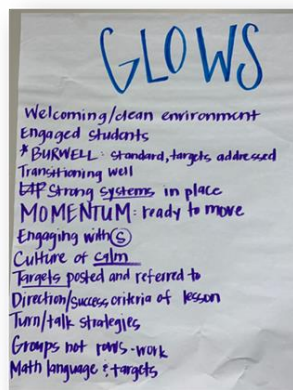 GLOWS
Welcoming/clean environment
Engaged students
*BURWELL: standard, targets addressed
Transitioning well
Strong systems in place
MOMENTUM: ready to move
Engaging with Ⓢ
Culture of calm
Targets posted and referred to
Direction/success criteria of lesson
Turn/talk strategies
Groups not rows-work
Math language & targets